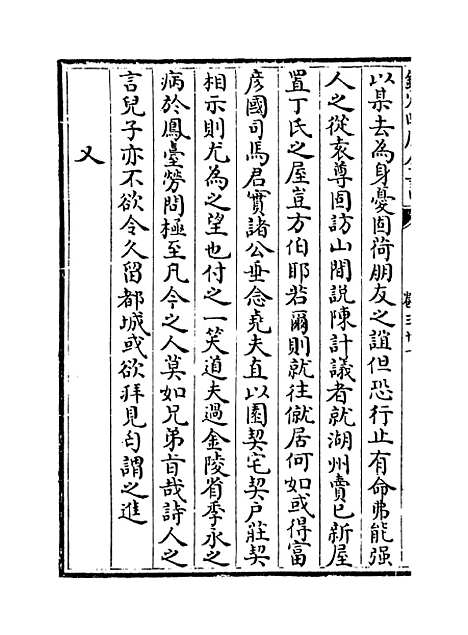 以某去為身憂固荷朋友之誼但恐行止有命弗能强
人之從袁尊固訪山間說陳計議者就湖州賣已新屋
置丁氏之屋豈方伯耶若爾則就往僦居何如或得富
彦國司馬君實諸公垂念堯夫直以園契宅契户莊契
相示則尤為之望也付之一笑道夫過金陵省季永之
病於鳳臺勞問極至凡今之人莫如兄弟旨哉詩人之
言兒子亦不欲令久留都城或欲拜見匄謂之進
又